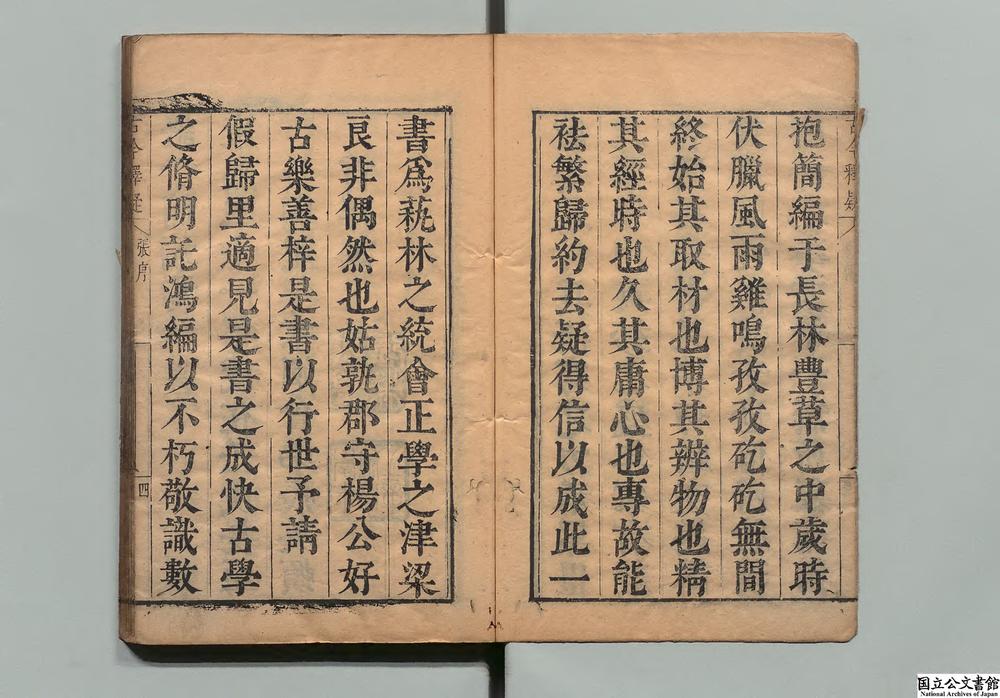 抱簡編于長林豐草之中歲時
伏臘風雨雞鳴孜孜矻矻無間
終始其取材也博其辨物也精
其經時也久其庸心也專故能
袪繁歸約去疑得信以成此一
書爲蓺林之統會正學之津梁
良非偶然也姑孰郡守楊公好
古樂善梓是書以行世予請
假歸里適見是書之成快古學
之脩明託鴻編以不朽敬識數
古今釋疑
張序
四
国立公文書館
National Archives of Japan